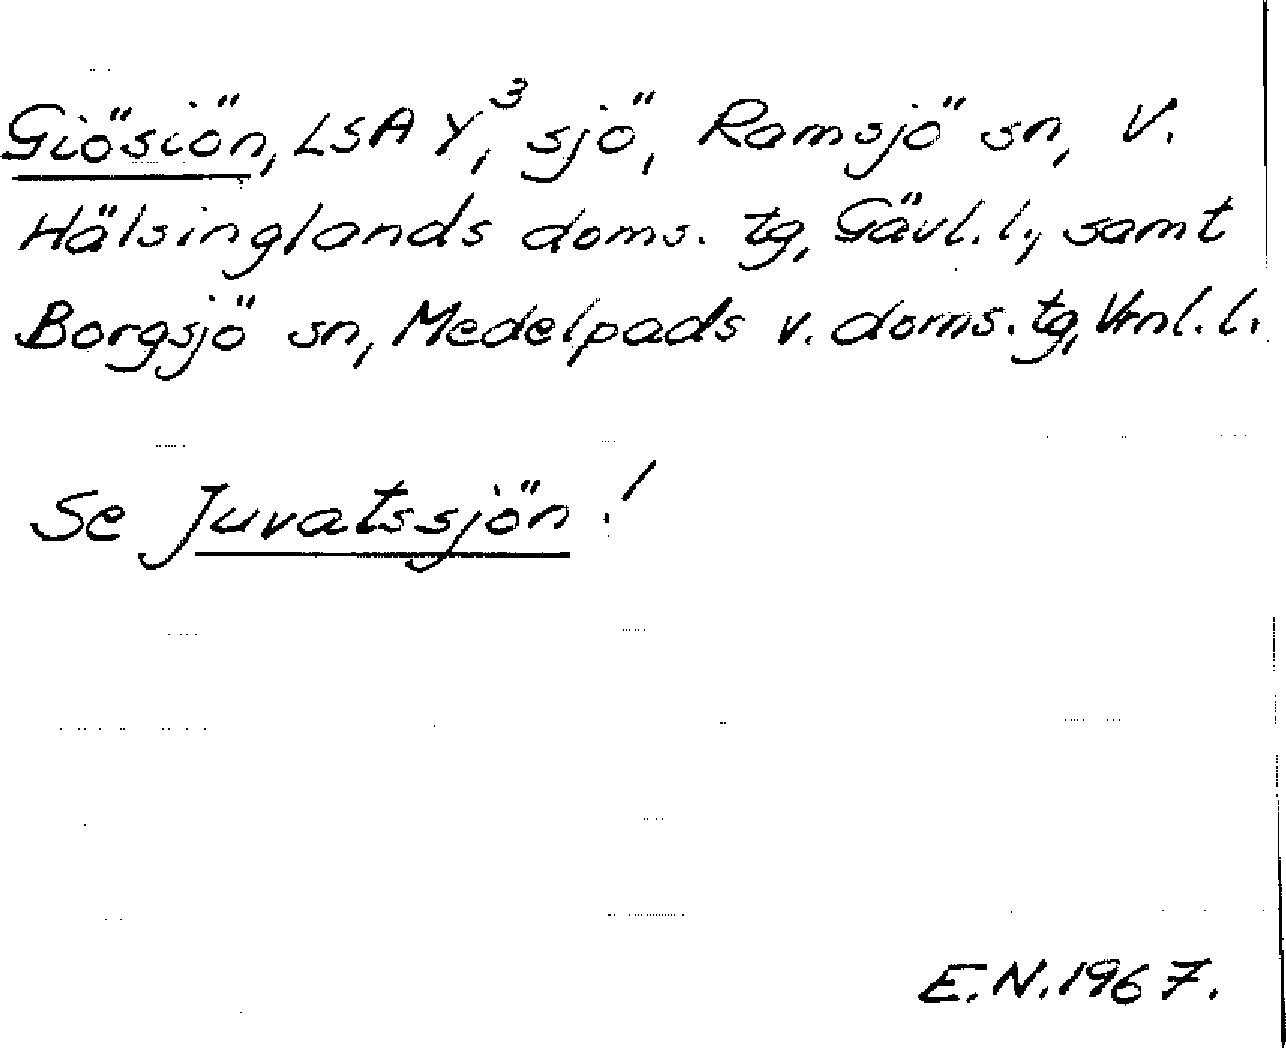 Giösiön, LSA Y³, sjö, Ramsjö sn, V.
Hälsinglands doms. tg, Gävl. l., samt
Borgsjö sn, Medelpads v. doms. tg, Vrnl. l.
Se Juvatssjön!
E.N. 1967.